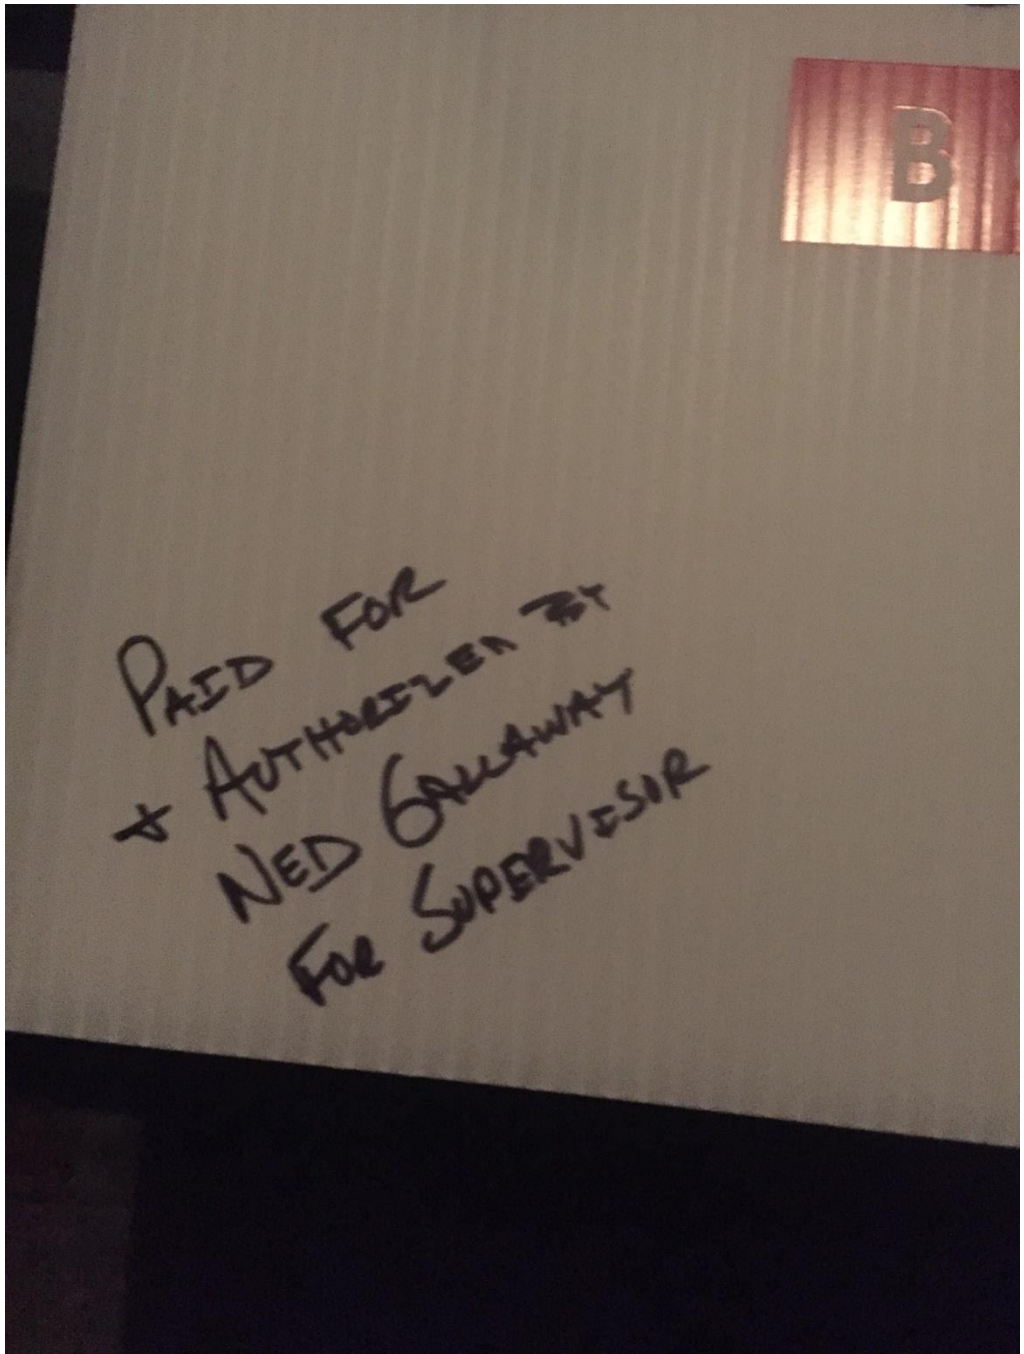 B
PAID FOR
+ AUTHORIZED BY
NED GALLAWAY
FOR SUPERVISOR